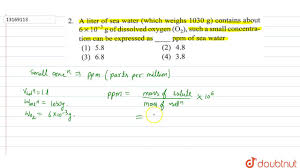 13169113
2. A liter of sea water (which weighs 1030 g) contains about
6×10⁻³ g of dissolved oxygen (O₂), such a small concentra-
tion can be expressed as ____ ppm of sea water
(1) 5.8 (2) 4.8
(3) 6.8 (4) 3.8
Small concⁿ ⇒ ppm (parts per million)
= 1 l
ppm = mass of solute / mass of solⁿ × 10⁶
= 1030g
= 6×10⁻³g
=
doubtnut